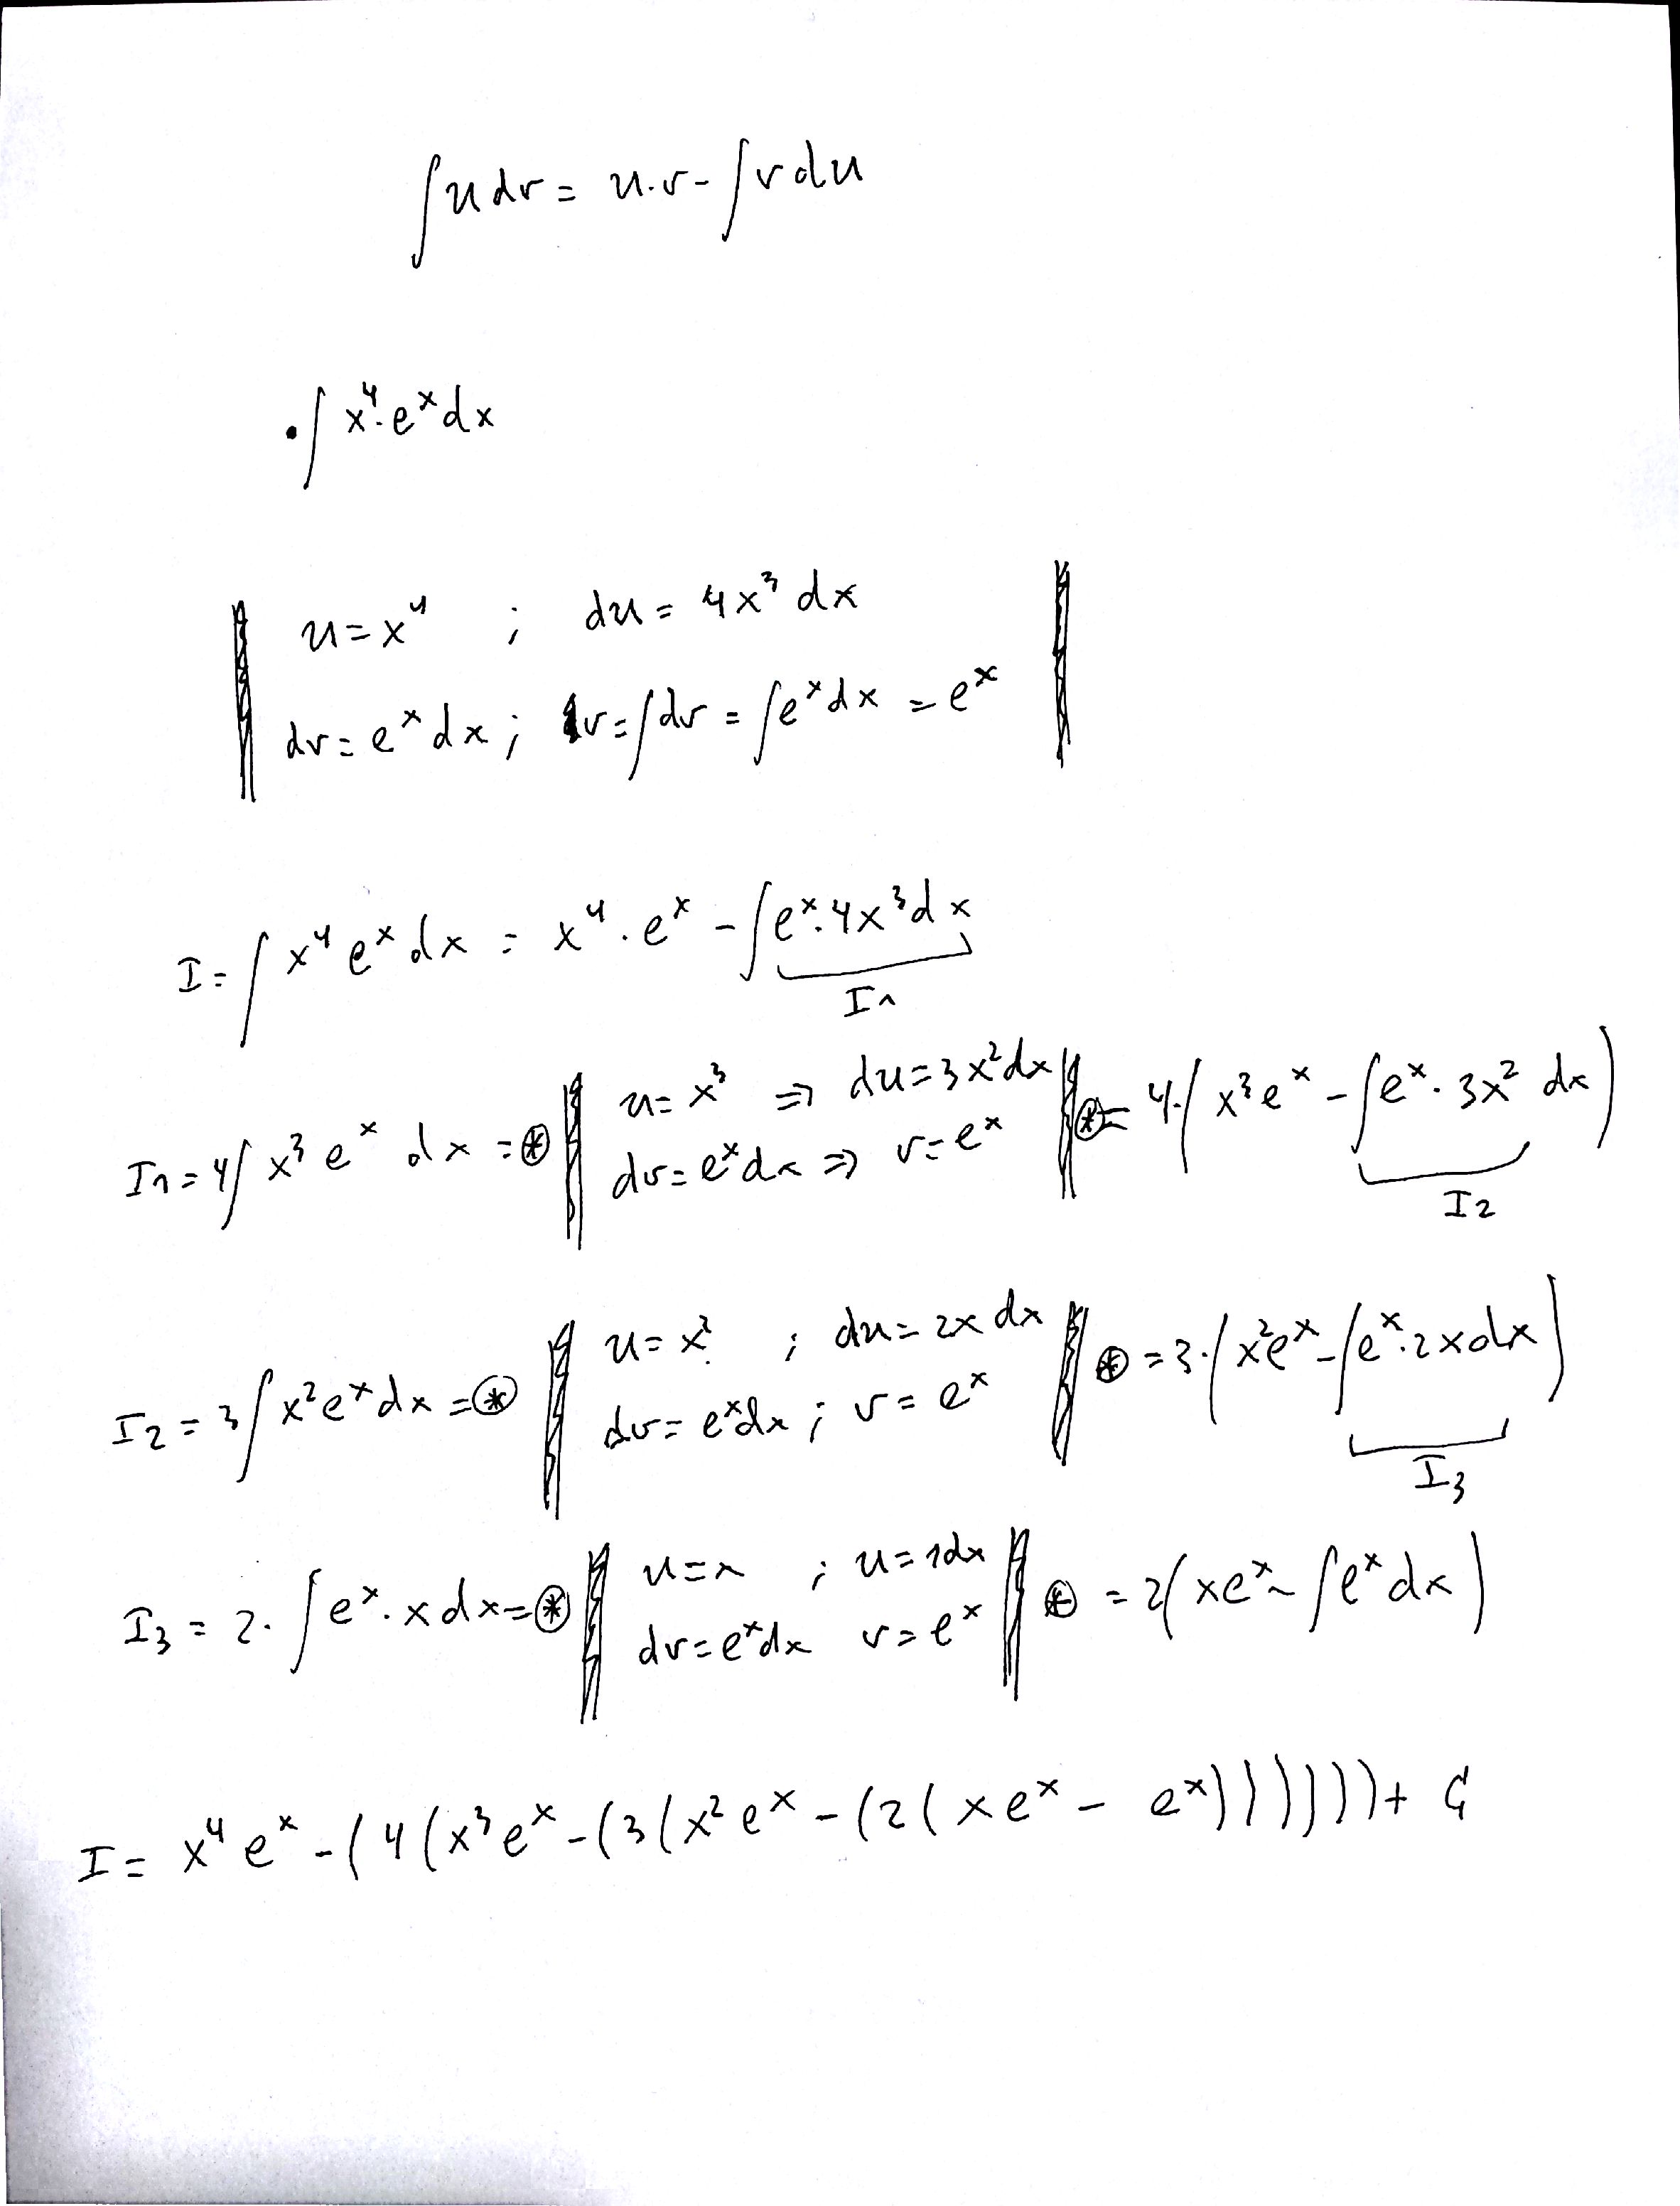 ∫u dv = u·v - ∫v du
• ∫x⁴·eˣ dx
‖ u = x⁴ ; du = 4x³ dx ‖
‖ dv = eˣ dx ; v = ∫dv = ∫eˣ dx = eˣ ‖
I = ∫x⁴ eˣ dx = x⁴·eˣ - ∫eˣ·4x³ dx
I1
I1 = 4∫x³ eˣ dx = ⊛ ‖ u = x³ ⇒ du = 3x² dx ‖ ⊛ = 4·(x³eˣ - ∫eˣ·3x² dx)
dv = eˣ dx ⇒ v = eˣ
I2
I2 = 3∫x²eˣ dx = ⊛ ‖ u = x² ; du = 2x dx ‖ ⊛ = 3·(x²eˣ - ∫eˣ·2x dx)
dv = eˣ dx ; v = eˣ
I3
I3 = 2·∫eˣ·x dx = ⊛ ‖ u = x ; u = 1dx ‖ ⊛ = 2(xeˣ - ∫eˣ dx)
dv = eˣ dx v = eˣ
I = x⁴eˣ - (4(x³eˣ - (3(x²eˣ - (2(xeˣ - eˣ)))))) + C